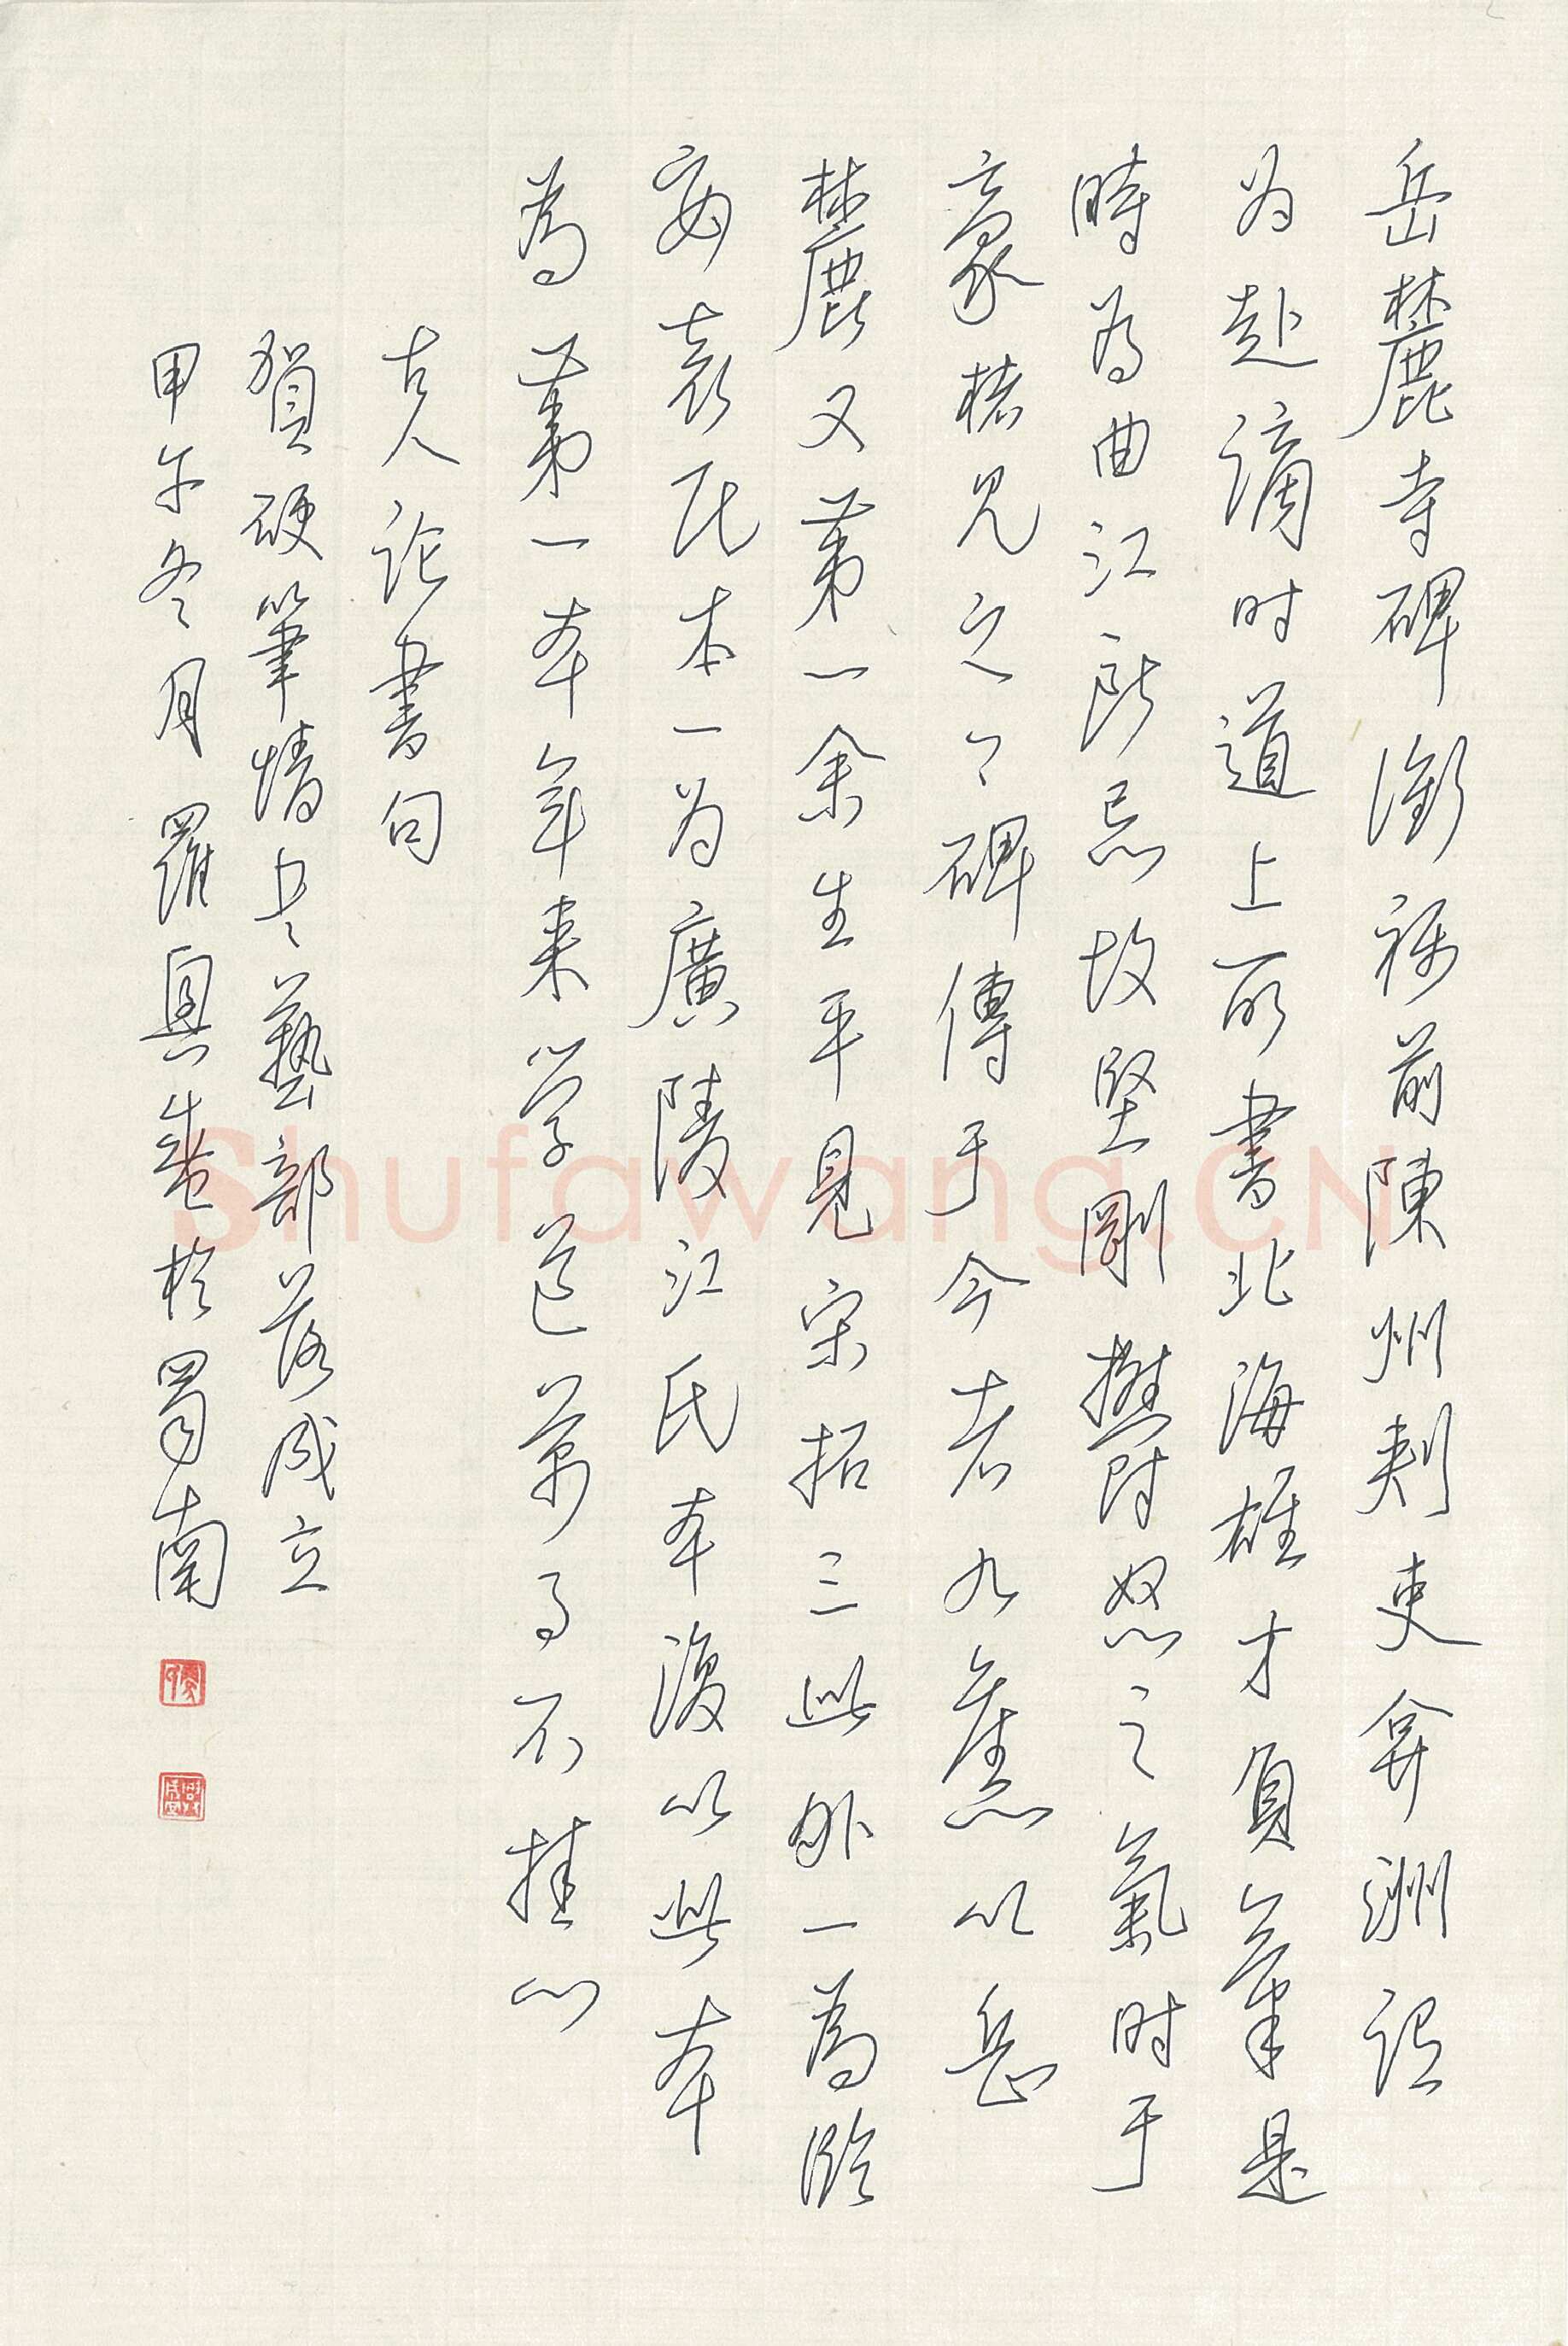 岳麓寺碑衔称前陈州刺吏弇洲謂
为赴謫时道上所書北海雄才負氣是
時為曲江所忌故堅剛鬱怒之氣时于
豪楮见之之碑傳于今者九舊以岳
麓又第一余生平見宋拓三此外一為臨
袁氏本一为廣陵江氏本後以此本
為第一本年来学道萬事不挂心
古人论書句
賀硬筆情書藝部落成立
甲午冬月羅興盛於蜀南
Shufawang.CN